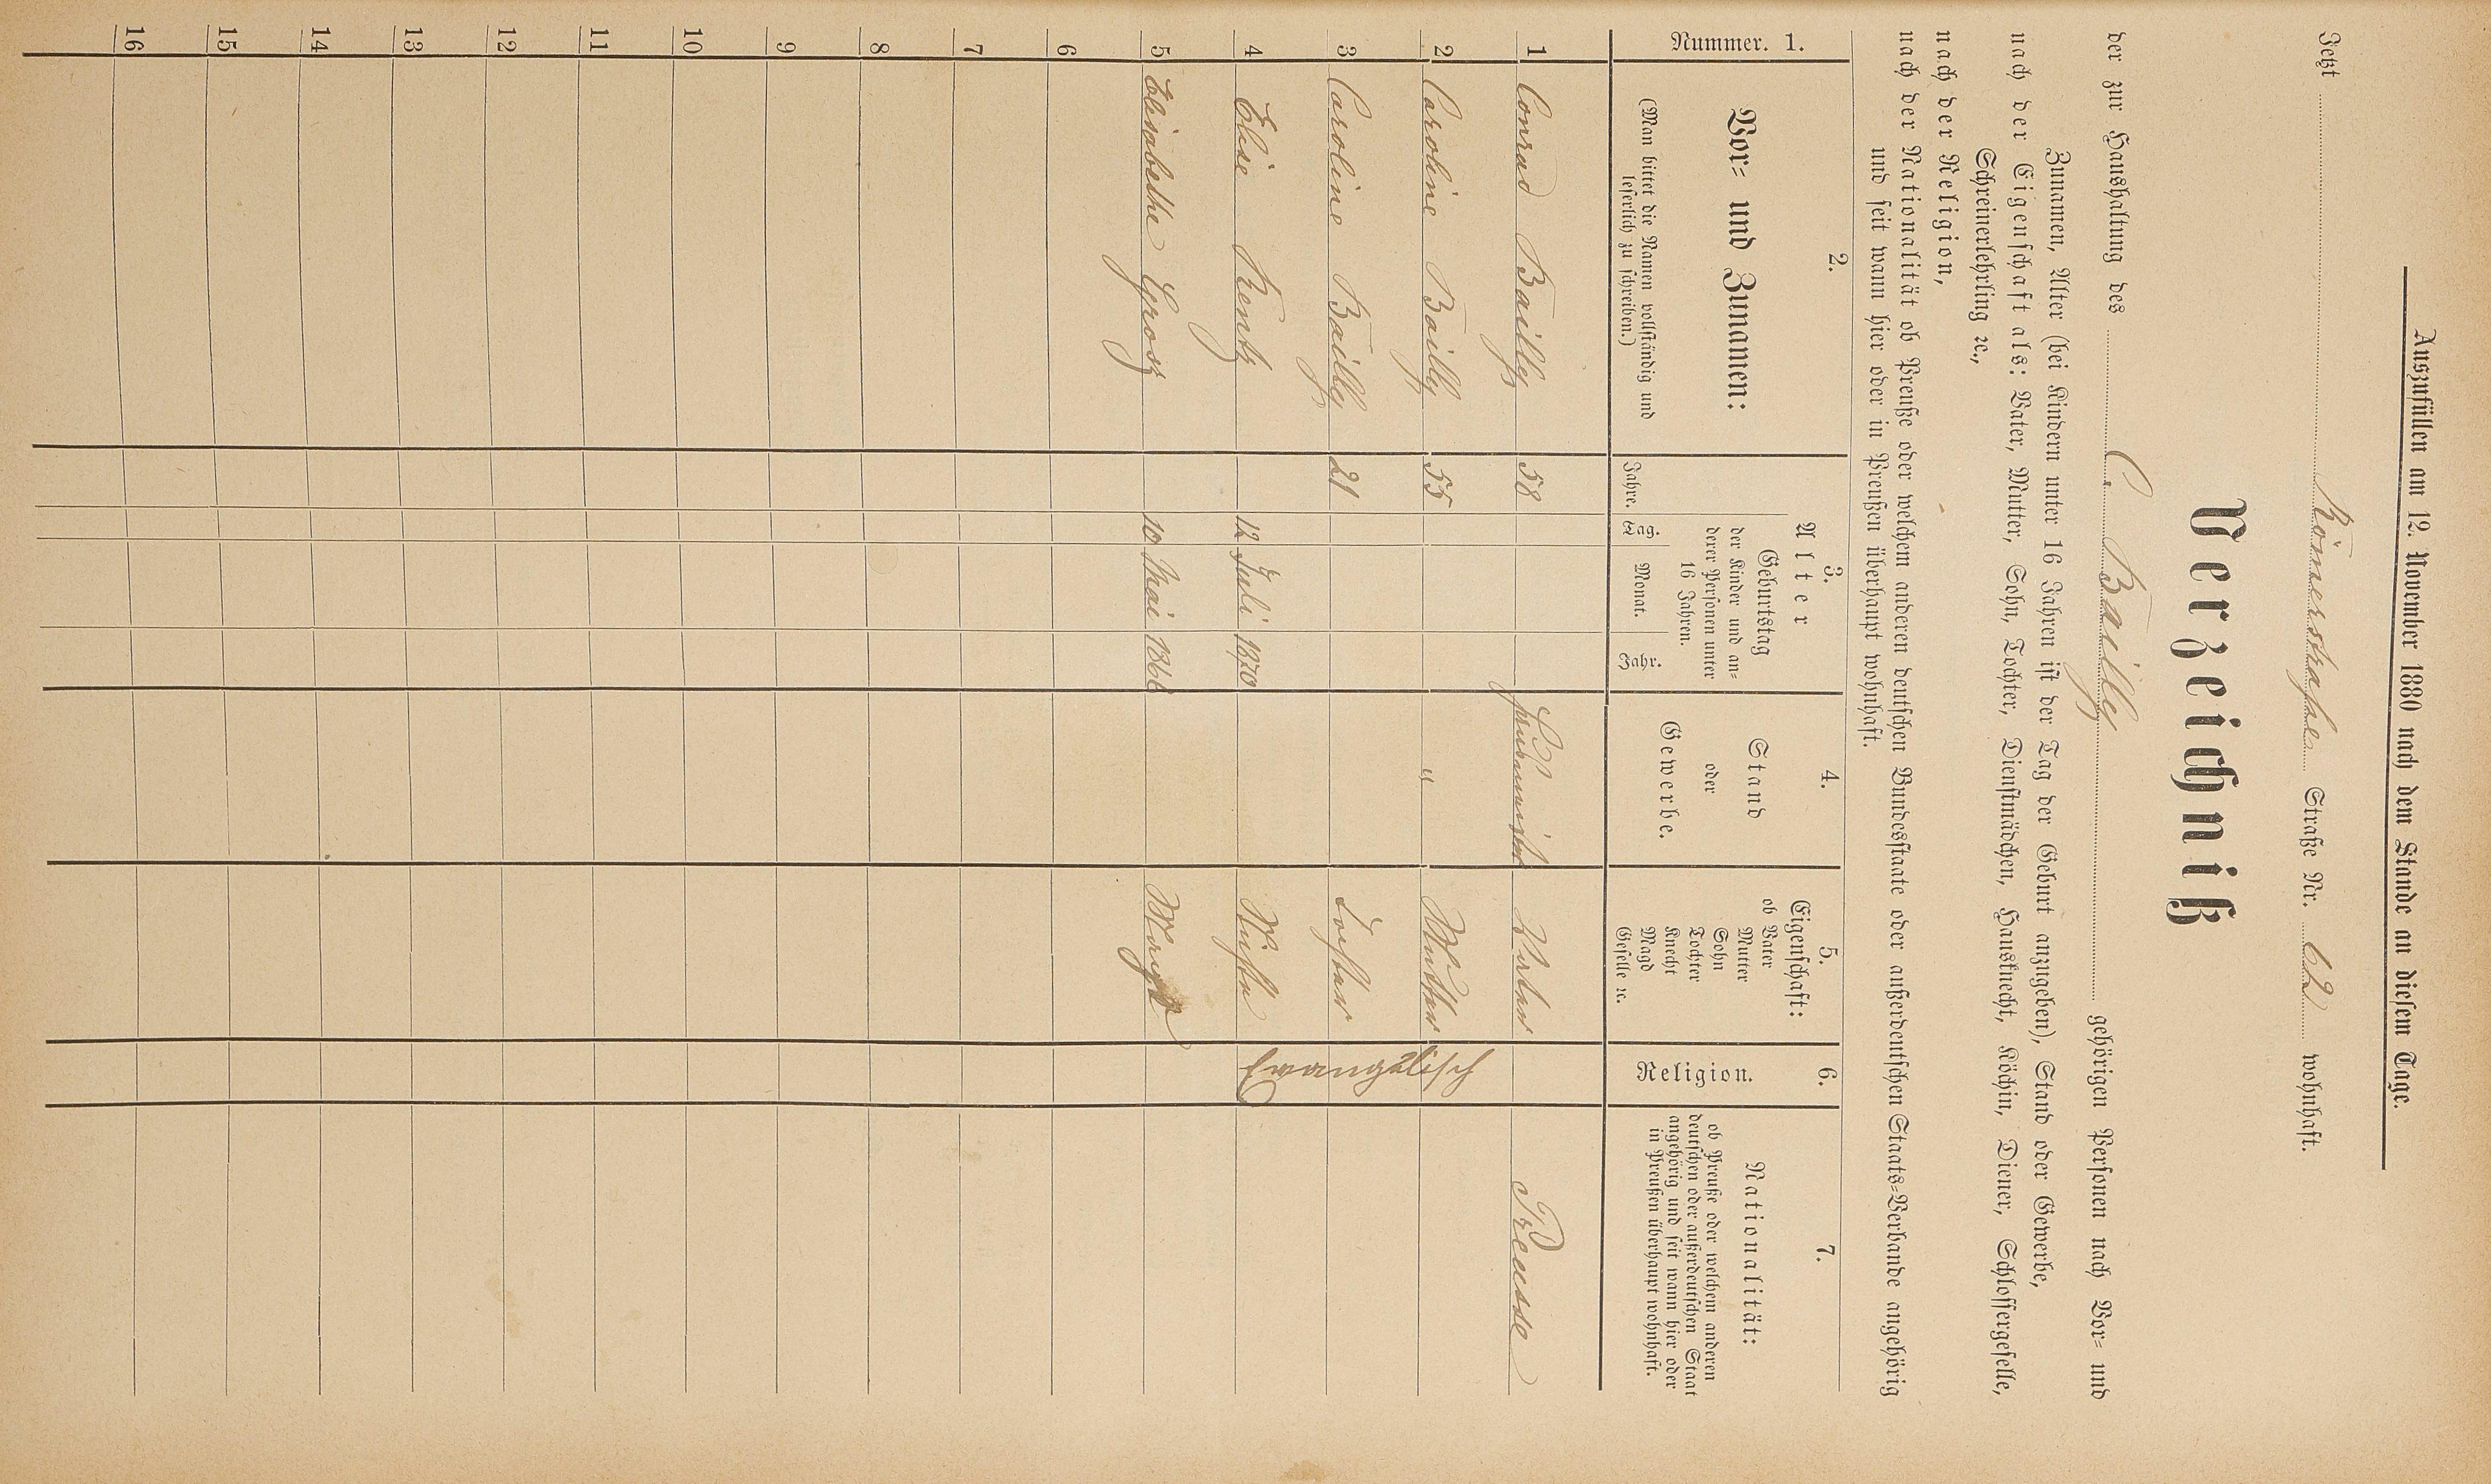 Auszufüllen am 12. November 1880 nach dem Stande an diesem Tage.
Jetzt Römerstraße Straße Nr. 62 wohnhaft.
Verzeichniß
der zur Haushaltung des C. Bailly gehörigen Personen nach Vor- und
Zunamen, Alter (bei Kindern unter 16 Jahren ist der Tag der Geburt anzugeben), Stand oder Gewerbe,
nach der Eigenschaft als: Vater, Mutter, Sohn, Tochter, Dienstmädchen, Hausknecht, Köchin, Diener, Schlossergeselle,
Schreinerlehrling ꝛc.,
nach der Religion,
nach der Nationalität ob Preuße oder welchem anderen deutschen Bundesstaate oder außerdeutschen Staats-Verbande angehörig
und seit wann hier oder in Preußen überhaupt wohnhaft.
Nummer. 1.
2.
Vor- und Zunamen:
(Man bittet die Namen vollständig und
leserlich zu schreiben.)
3.
Alter
Geburtstag
der Kinder und an-
derer Personen unter
16 Jahren.
Jahre. Tag. Monat. Jahr.
4.
Stand
oder
Gewerbe.
5.
Eigenschaft:
ob Vater
Mutter
Sohn
Tochter
Knecht
Magd
Geselle ꝛc.
6.
Religion.
7.
Nationalität:
ob Preuße oder welchem anderen
deutschen oder außerdeutschen Staat
angehörig und seit wann hier oder
in Preußen überhaupt wohnhaft.
1 Conrad Bailly 58 Vater Preusse
2 Caroline Bailly 55 " Mutter
Evangelisch
3 Caroline Bailly 21 Tochter
4 Elise Rentz 12 Juli 1870 Nichte
5 Elisabethe Gross 10 Mai 1866 Magd
6
7
8
9
10
11
12
13
14
15
16